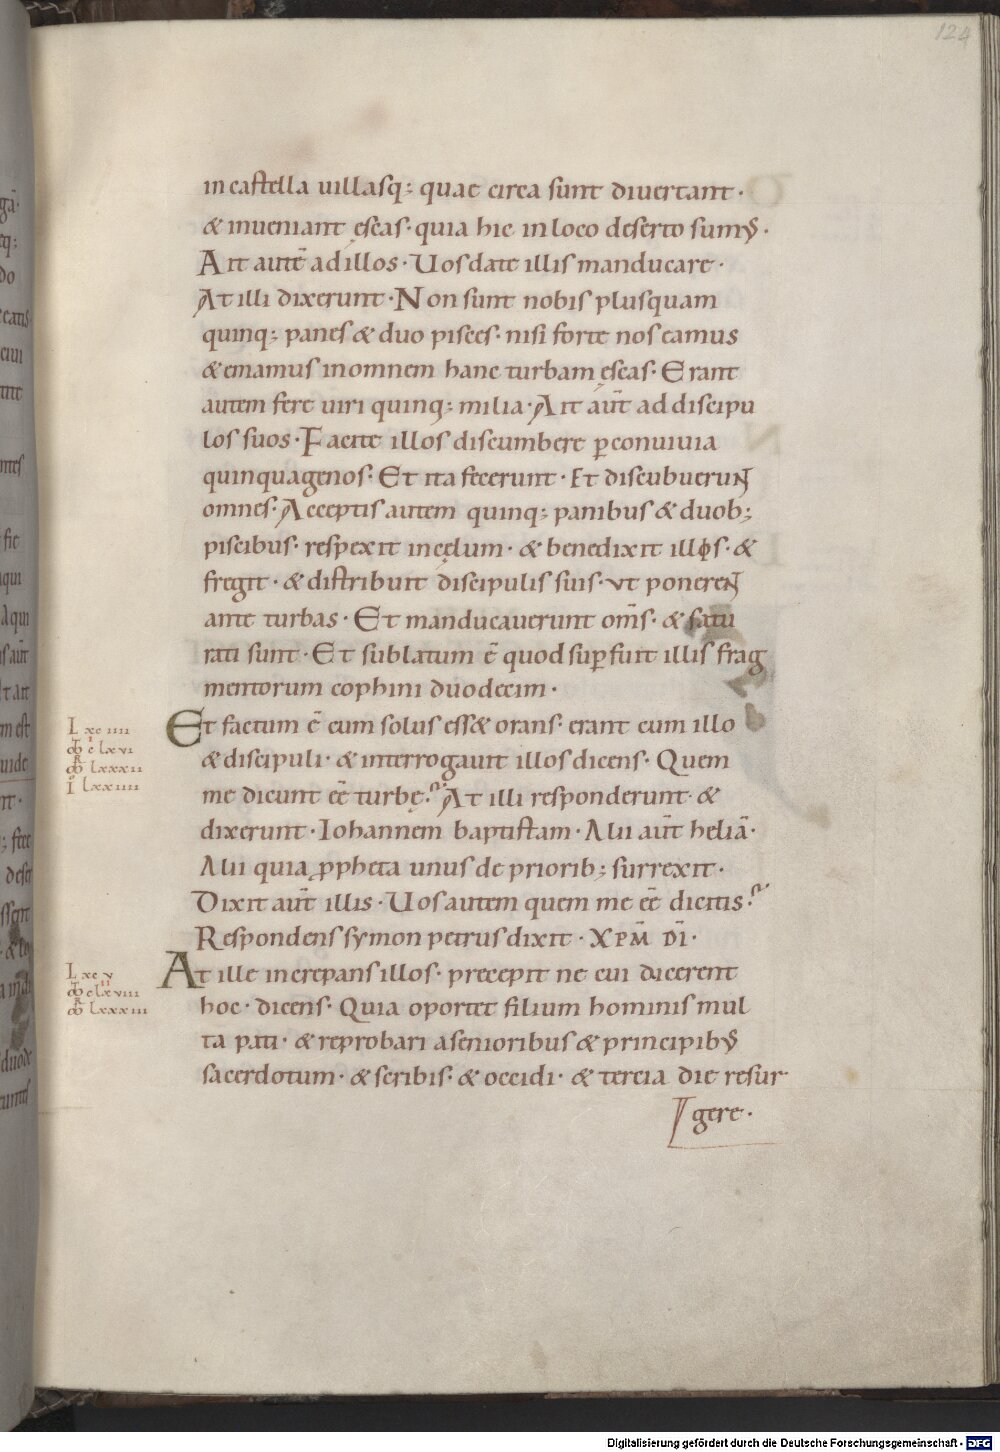 124
in castella uillasq; quae circa sunt diuertant·
& inueniant ęscas· quia hic in loco deserto sumꝰ·
Ait autē ad illos· Uos date illis manducare·
At illi dixerunt· Non sunt nobis plus quam
quinq; panes & duo pisces· nisi forte nos eamus
& emamus in omnem hanc turbam ęscas· Erant
autem fere uiri quinq; milia· Ait aūt ad discipu
los suos· Facite illos discumbere ꝑ conuiuia
quinquagenos· Et ita fecerunt· Et discubuerunt
omnes· Acceptis autem quinq; panibus & duob;
piscibus· respexit in cęlum· & benedixit illos· &
fregit· & distribuit discipulis suis· ut ponerent
ante turbas· Et manducauerunt om̄s· & satu
rati sunt· Et sublatum ē quod suꝑfuit illis frag
mentorum cophini duodecim·
L xciiii
Et factum ē cum solus ess& orans· erant cum illo
& discipuli· & interrogauit illos dicens· Quem
me dicunt eē turbę? At illi responderunt· &
dixerunt· Iohannem baptistam· Alii aūt heliā·
Alii quia ꝓpheta unus de priorib; surrexit·
Dixit aūt illis· Uos autem quem me eē dicitis?
Respondens symon petrus dixit· XPM̄ DĪ·
L xcv
At ille increpans illos· precepit ne cui dicerent
hoc· dicens· Quia oportet filium hominis mul
ta pati· & reprobari a senioribus & principibꝰ
sacerdotum· & scribis· & occidi· & tercia die resur
gere·
Digitalisierung gefördert durch die Deutsche Forschungsgemeinschaft - DFG